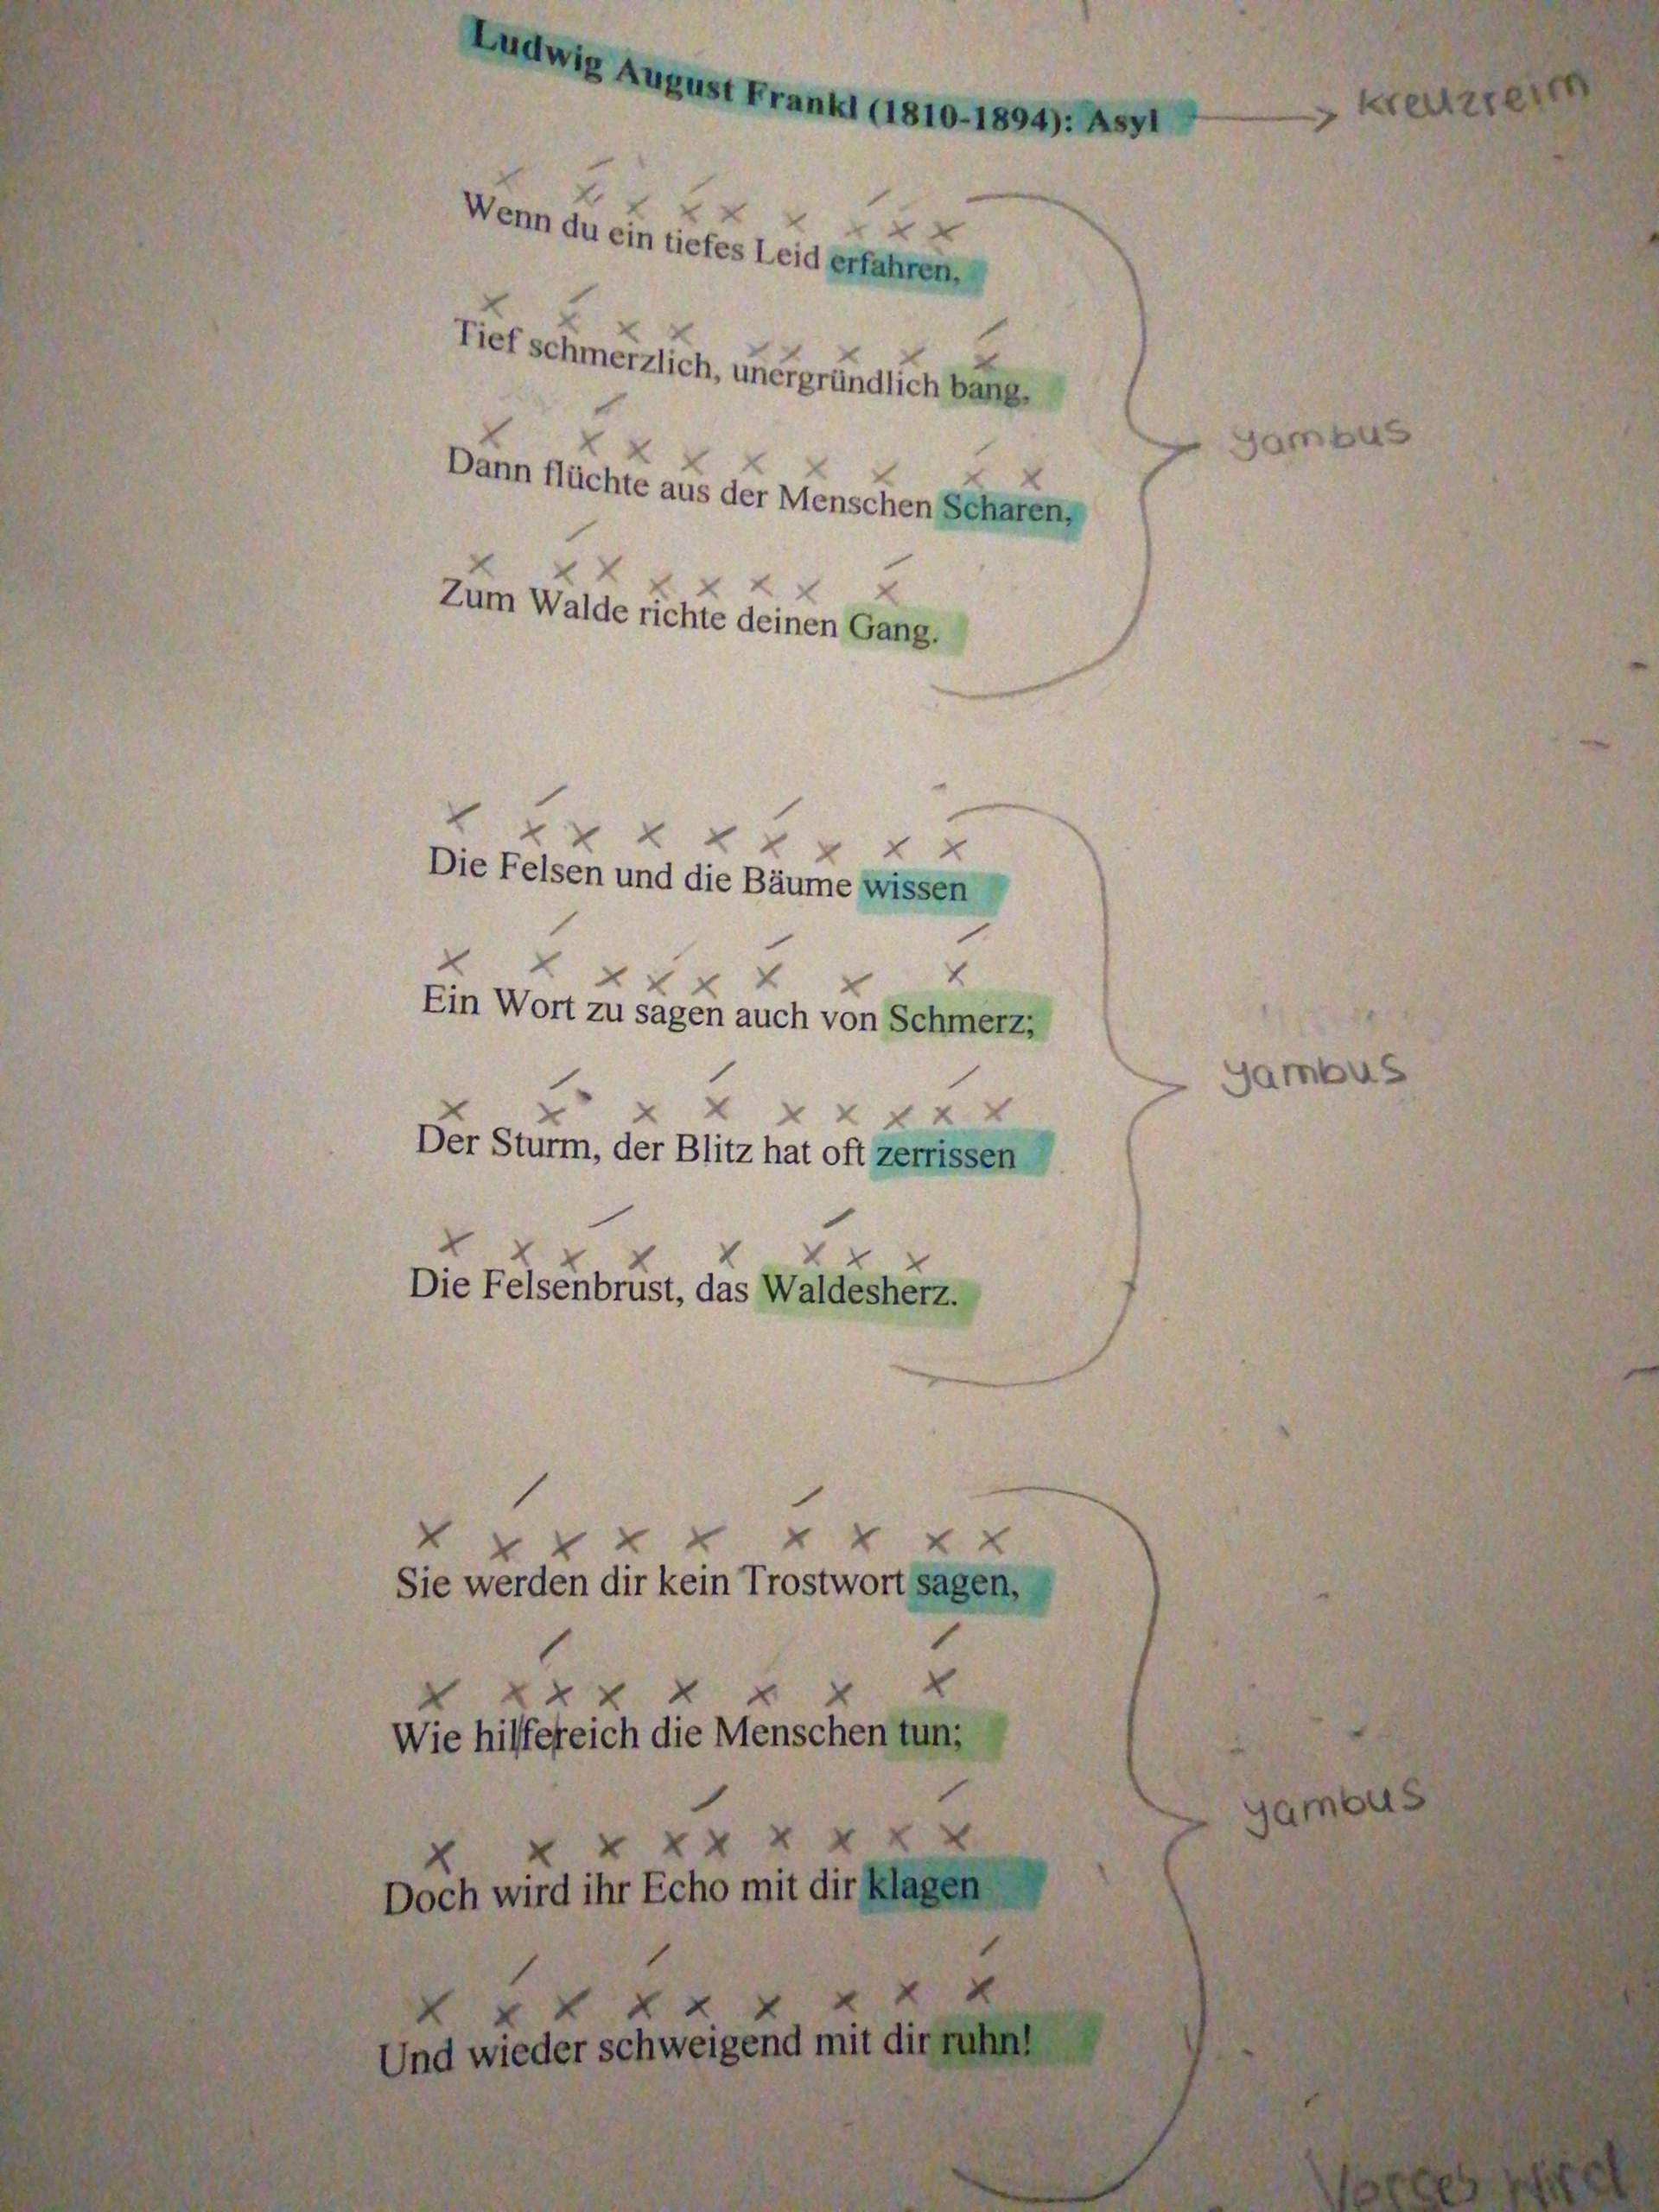 Ludwig August Frankl (1810-1894): Asyl
kreuzreim
Wenn du ein tiefes Leid erfahren,
Tief schmerzlich, unergründlich bang,
Dann flüchte aus der Menschen Scharen,
Zum Walde richte deinen Gang.
yambus
Die Felsen und die Bäume wissen
Ein Wort zu sagen auch von Schmerz;
Der Sturm, der Blitz hat oft zerrissen
Die Felsenbrust, das Waldesherz.
yambus
Sie werden dir kein Trostwort sagen,
Wie hilfereich die Menschen tun;
Doch wird ihr Echo mit dir klagen
Und wieder schweigend mit dir ruhn!
yambus
Verses wird